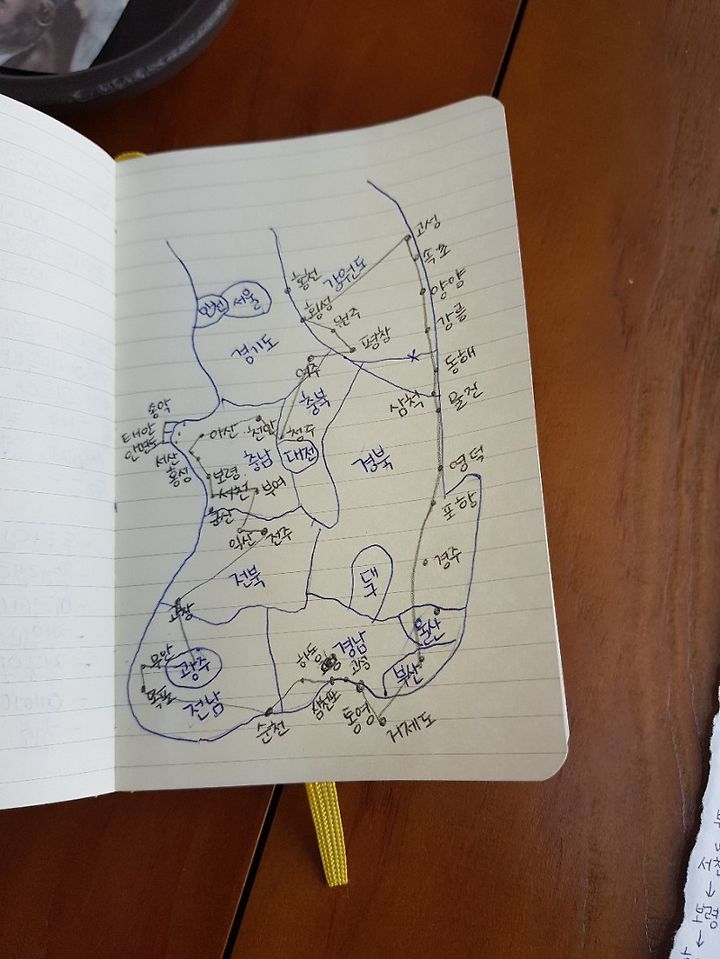 고성
속초
홍천
강원도
양양
인천
서울
횡성
원주
강릉
경기도
평창
동해
여주
충북
삼척
울진
송악
태안
안면도
아산
천안
청주
서산
충남
대전
경북
홍성
보령
영덕
서천
부여
군산
포항
익산
전주
경주
전북
대구
고창
울산
무안
광주
하동
경남
고성
부산
목포
전남
삼천포
통영
순천
거제도
서천
↑
보령
↑